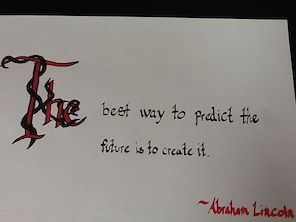 The best way to predict the
future is to create it.
~Abraham Lincoln